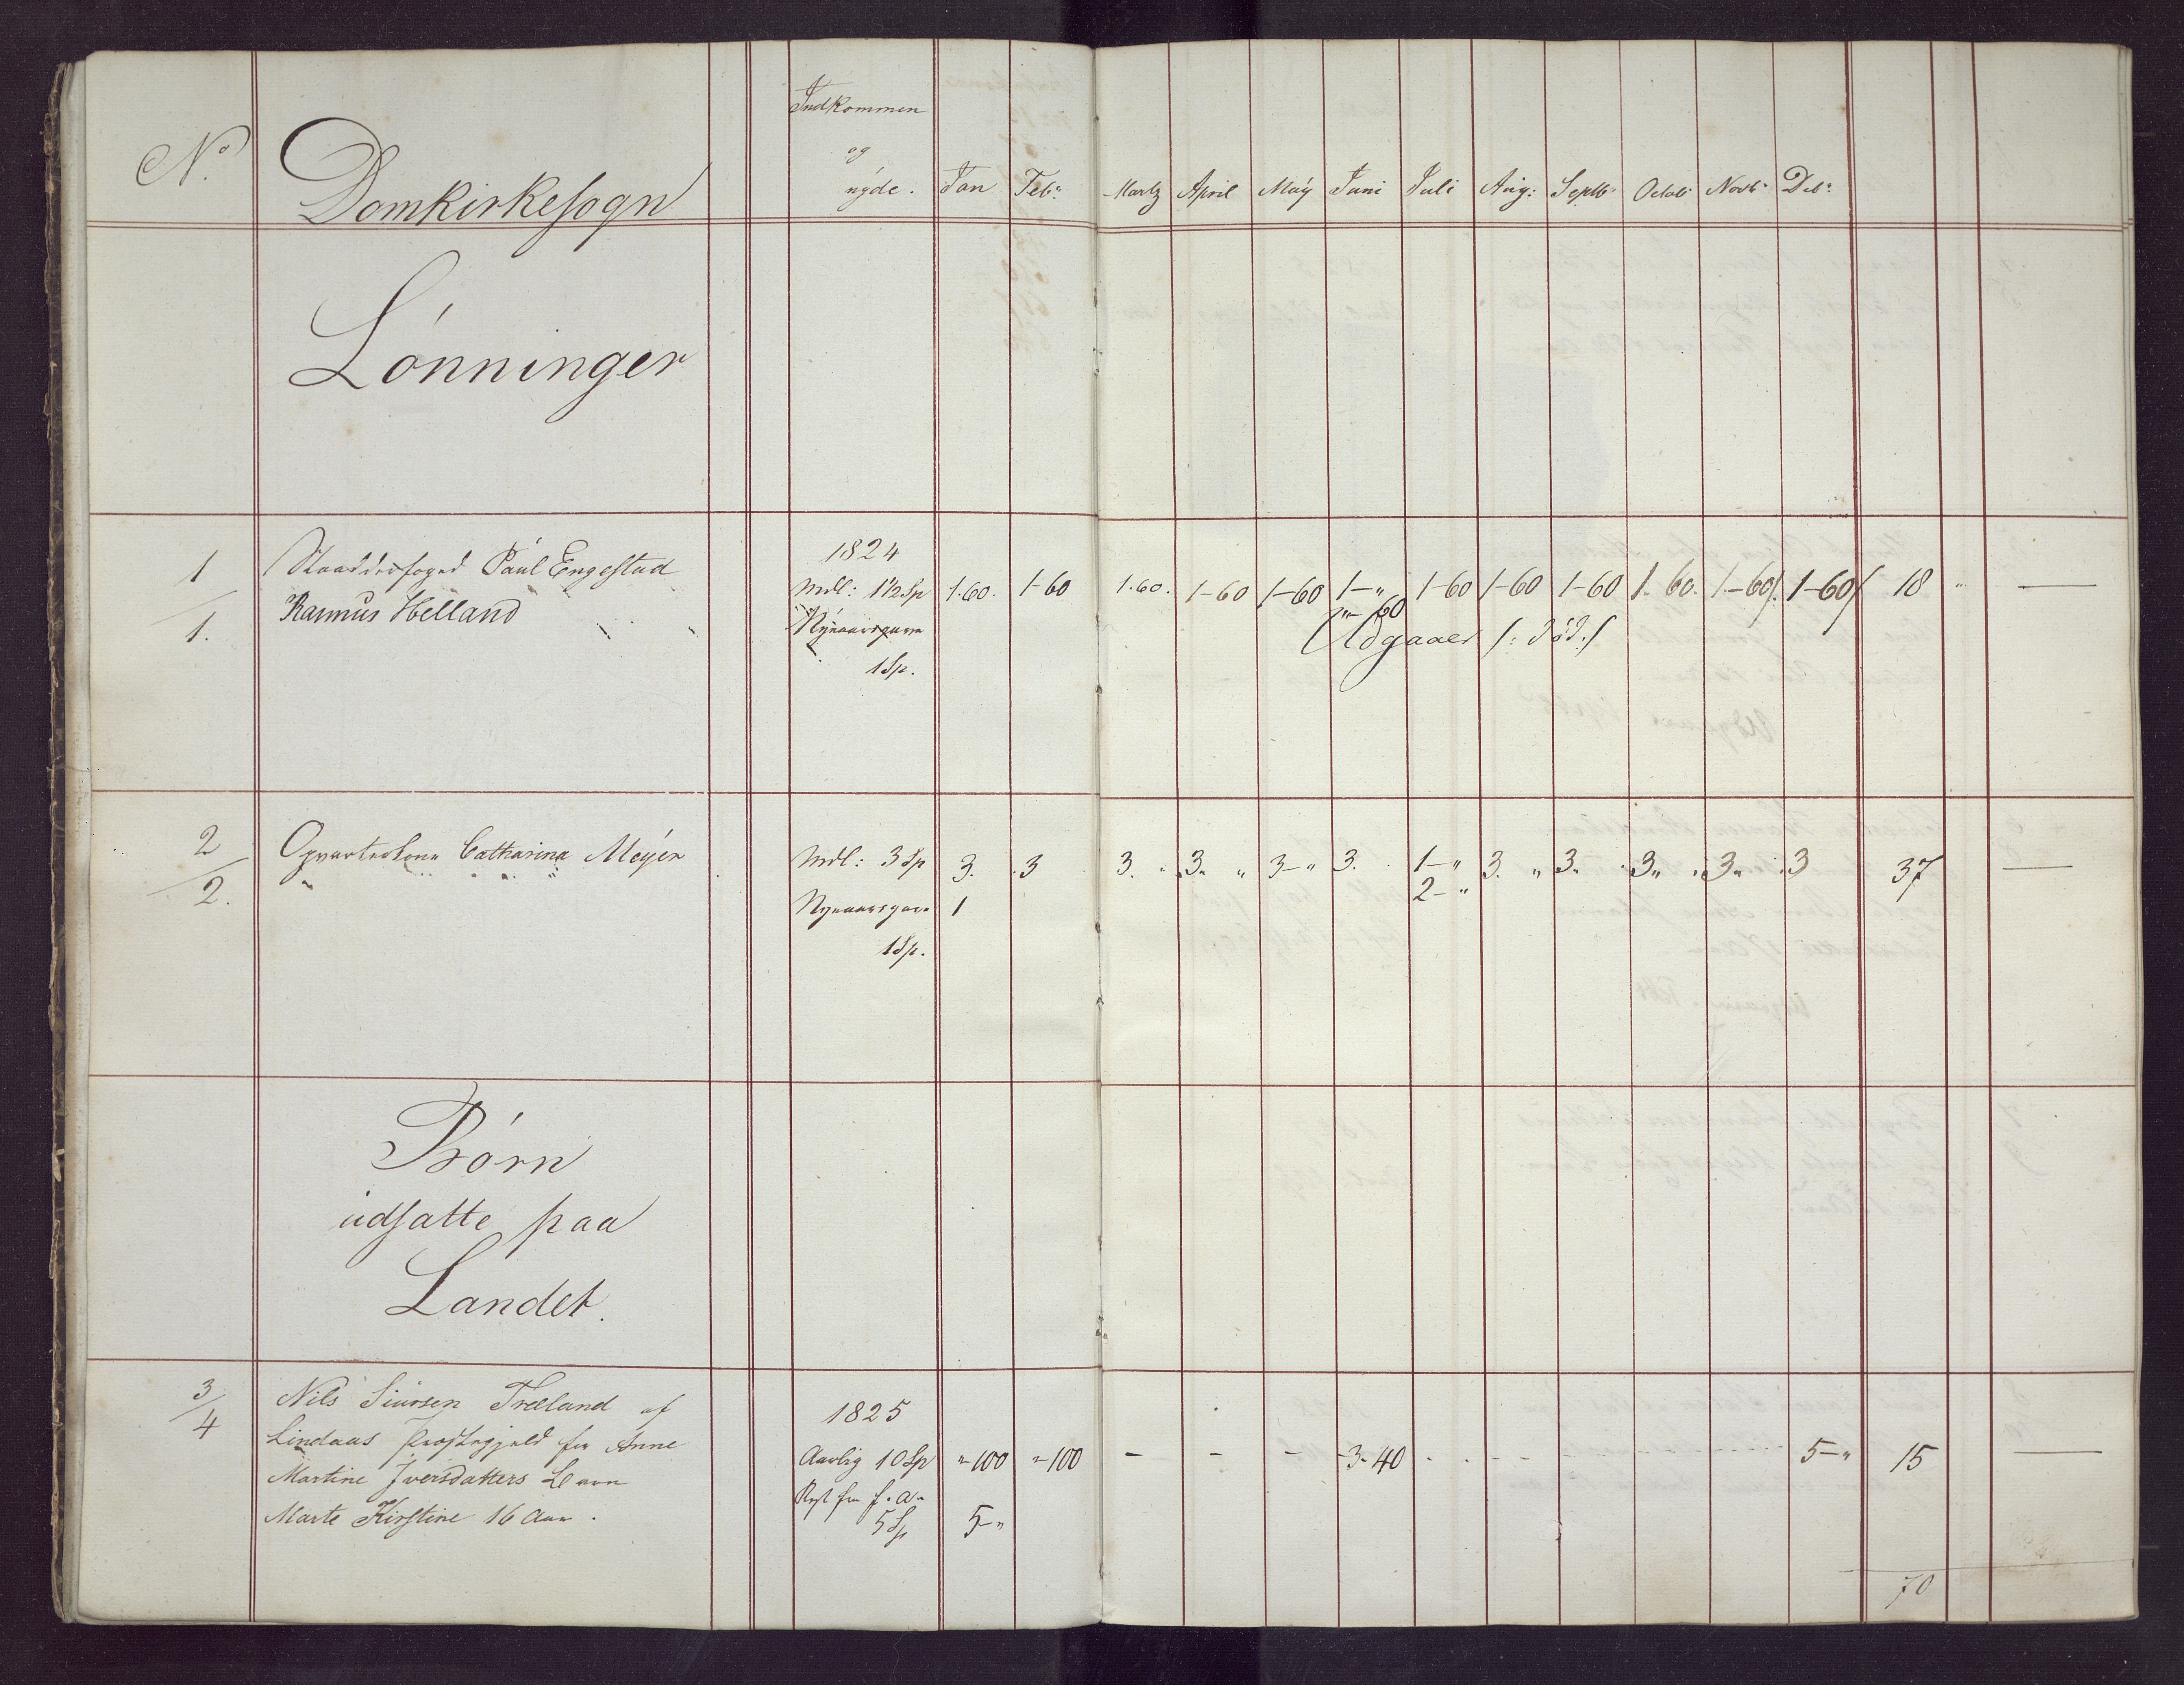 Indkommen
og
nyde.
No. Domkirkesogn Jan Febr: Martz April May Juni Juli Aug: Septbr Octob Novbr Debr:
Lønninger
1 Staadderfoged Paul Engestad 1824
1. Rasmus Helland Mdl: 1 1/2 Sp 1.60. 1-60 1.60. 1-60 1-60 1-" 1-60 1-60 1-60 1.60. 1-60/. 1-60/ 18 " —
"-60
Nyaarsgave Udgaaer /: død :/
1 Sp.
2 Opvarterkone Catharina Meyer Mdl: 3 Sp 3. .3 3. " 3. " 3-" 3. 1-" 3. " 3. 3" 3" 3 37 —
2. 2-"
Nyaarsgave 1
1 Sp.
Børn
udsatte paa
Landet.
3 Nils Siursen Træland af 1825
4 Lindaas Præstegjeld for Anne Aarlig 10 Sp "-100 "-100 - - - -3-40 - - - - - 5-" 15 —
Martine Iversdatters Barn Rest fra f. a.
Marte Kirstine 16 Aar. 5 Sp 5-"
70